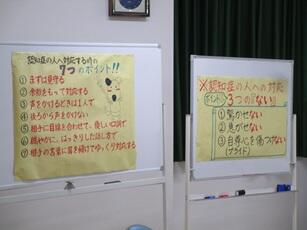 認知症の人へ対応する時の
7つのポイント!!
① まずは見守る
② 余裕をもって対応する
③ 声をかけるときは1人で
④ 後ろから声をかけない
⑤ 相手に目線を合わせて、優しい口調で
⑥ 穏やかに、はっきりした話し方で
⑦ 相手の言葉に耳を傾けてゆっくり対応する
※認知症の人への対応
ポイント 3つの『ない』
① 驚かせない
② 急がせない
③ 自尊心を傷つけない
(プライド)